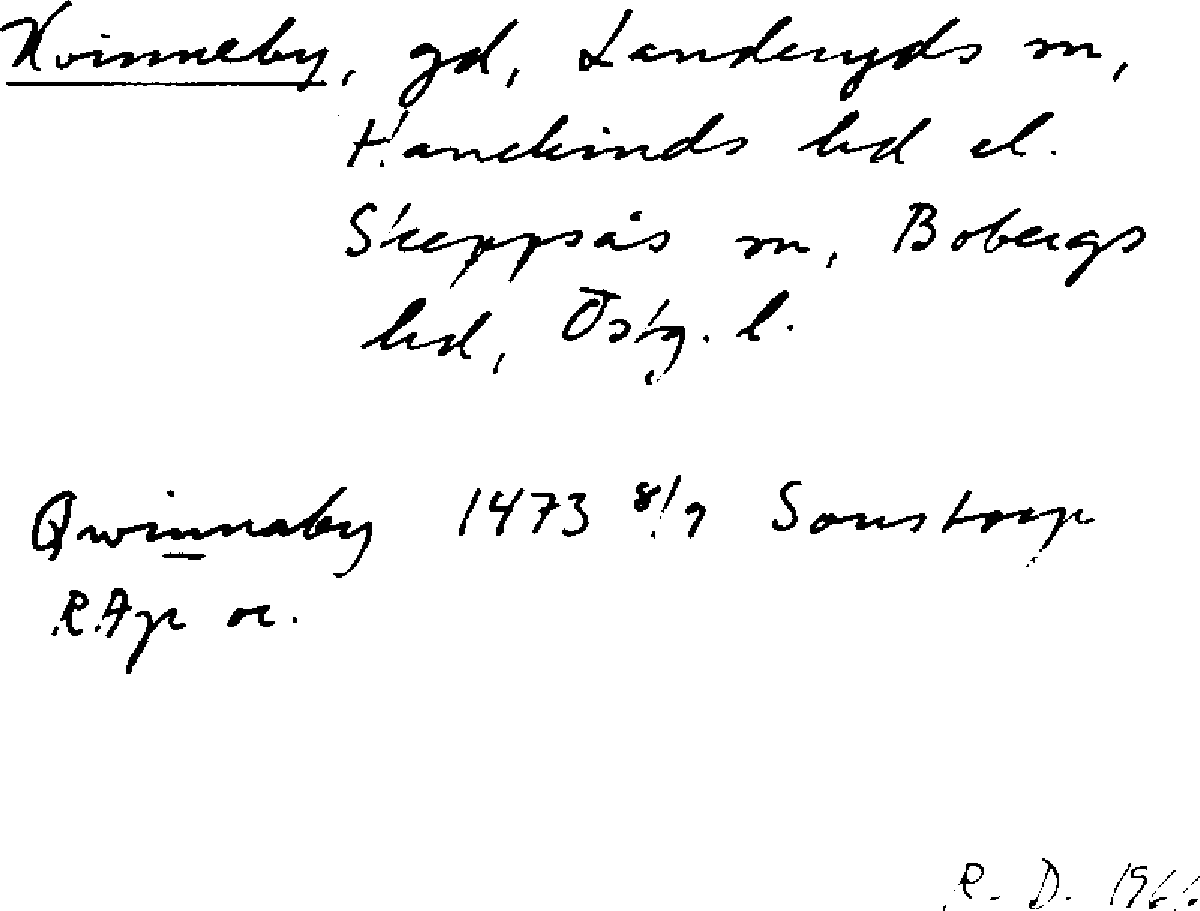 Kvinneby, gd, Landeryds sn,
Hanekinds hd el.
Skeppsås sn, Bobergs
hd, Östg. l.
Qwinnaby 1473 8/9 Sonstorp
RAp or.
R. D. 1966